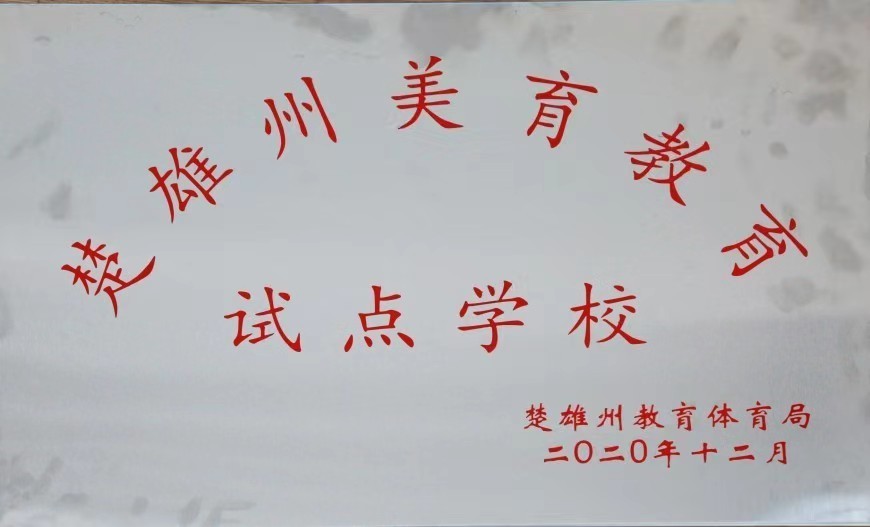 楚雄州美育教育
试点学校
楚雄州教育体育局
二〇二〇年十二月